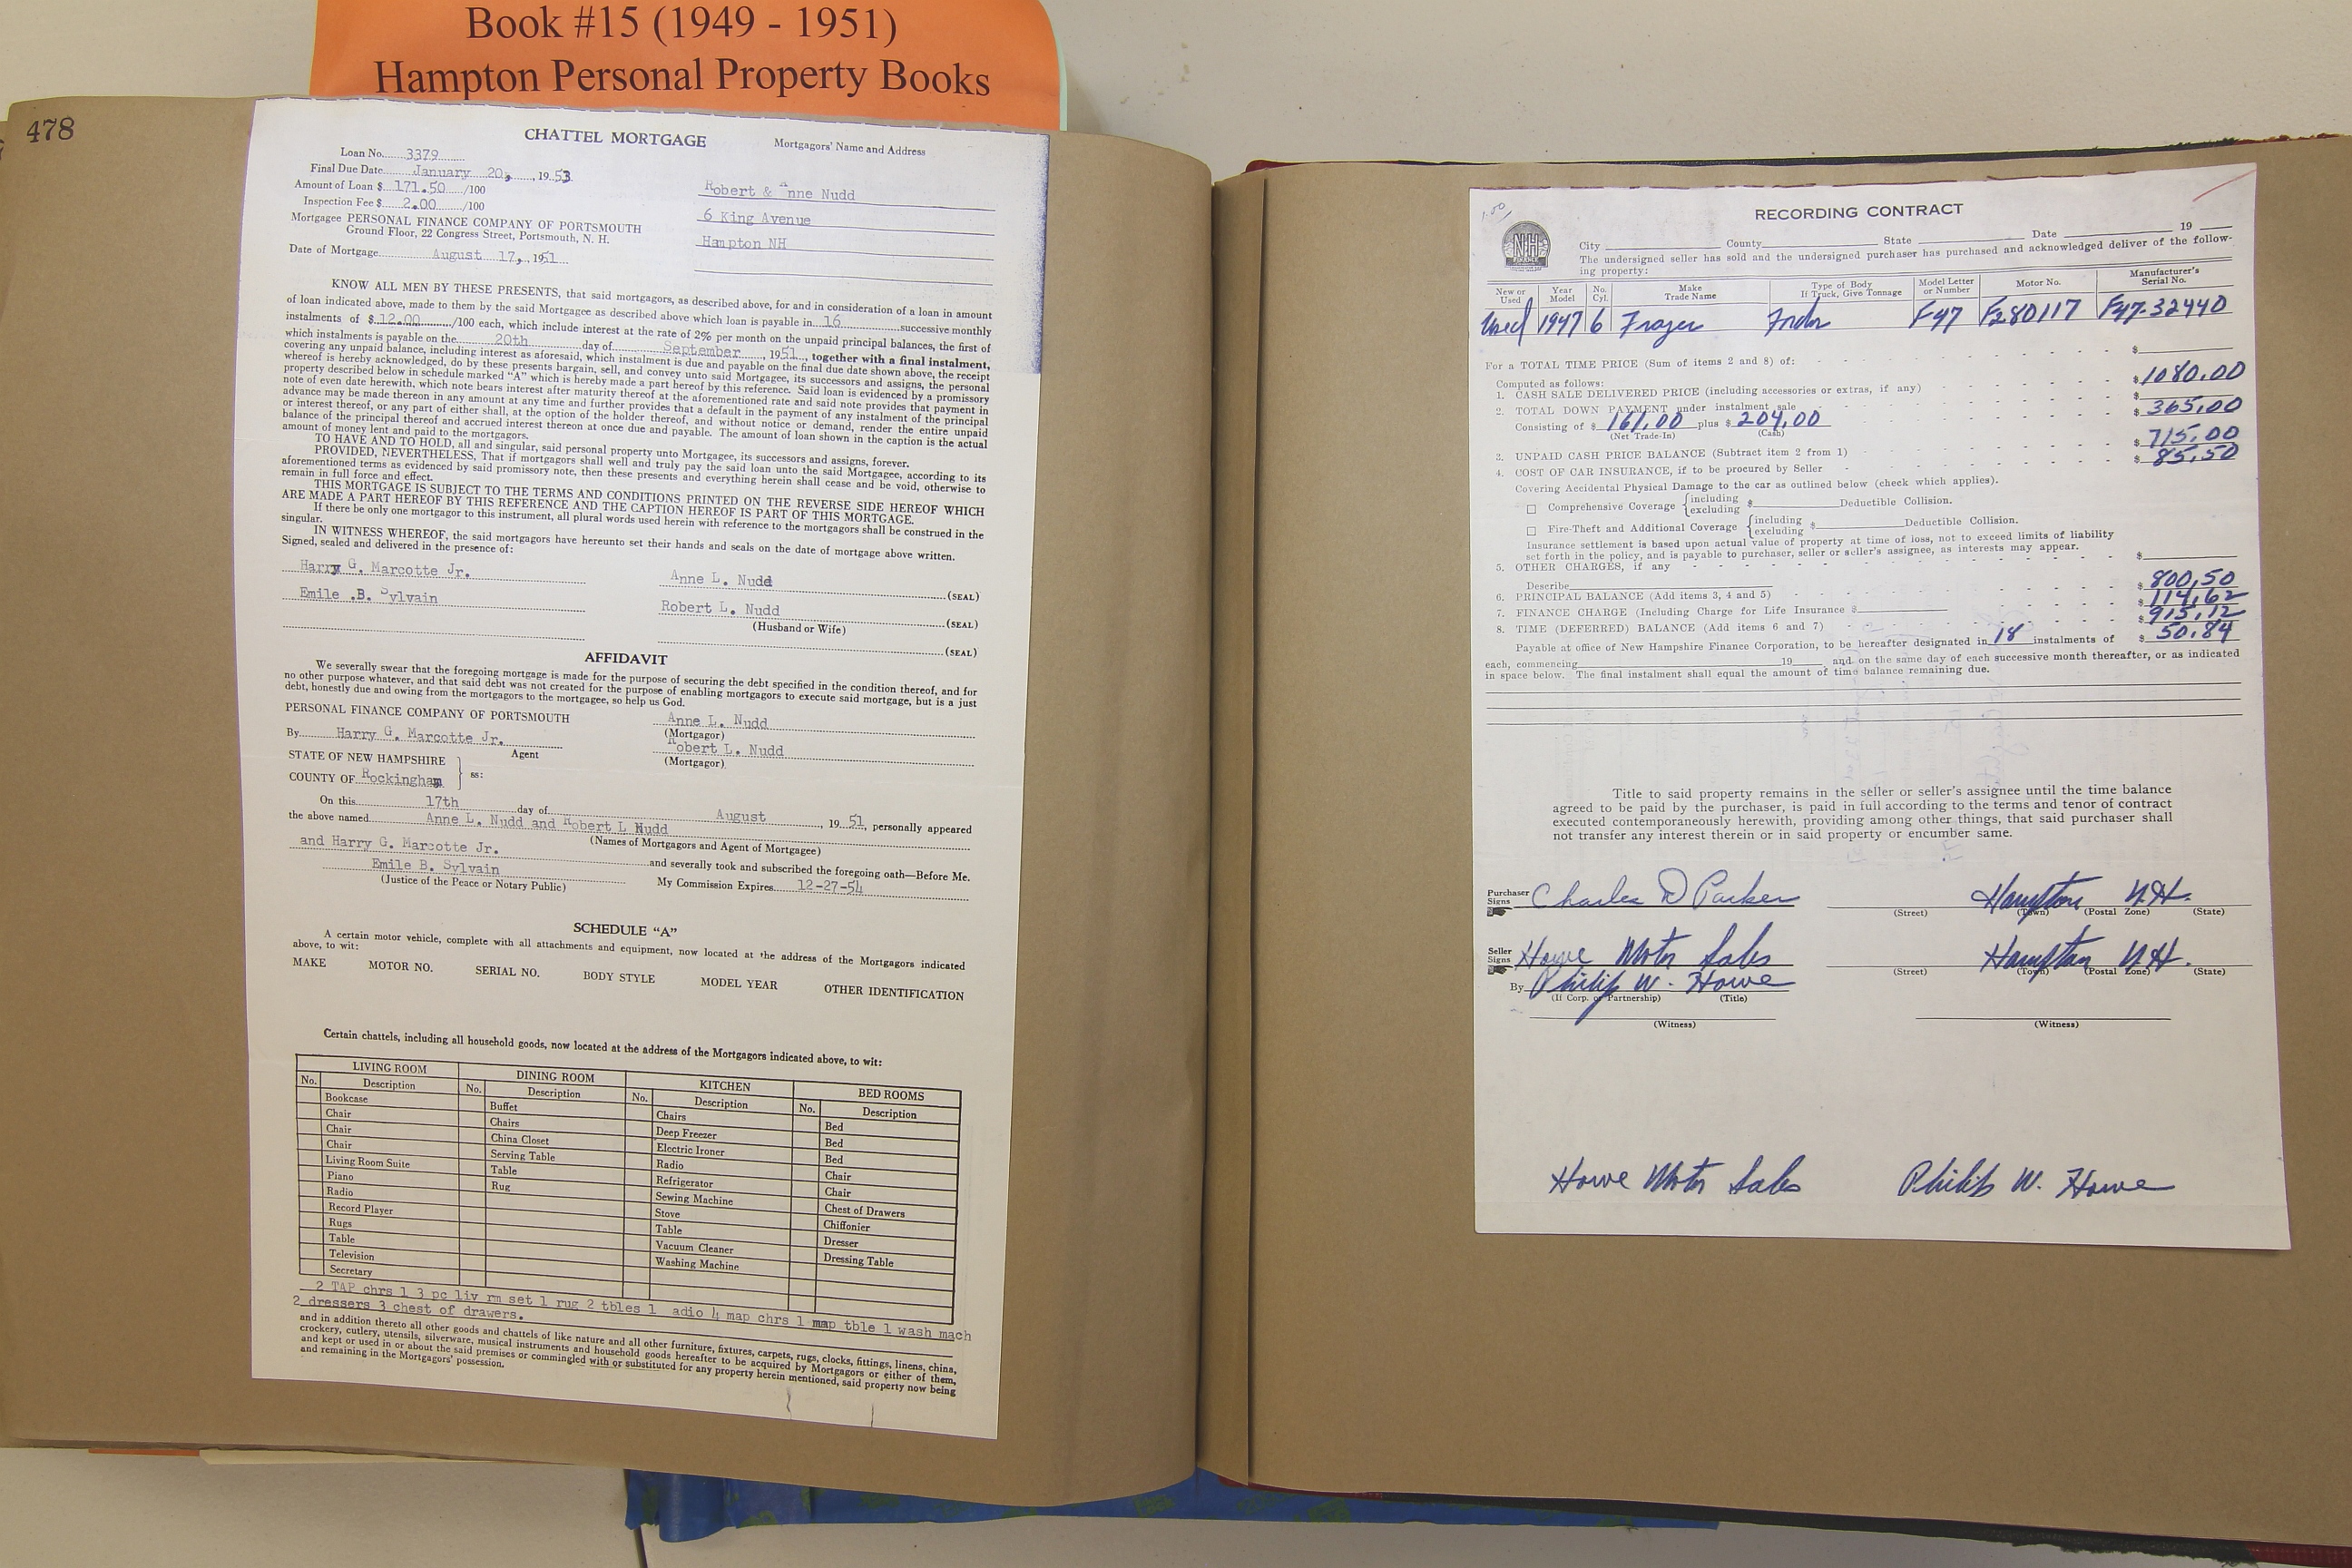 Book #15 (1949 - 1951)
Hampton Personal Property Books
478
CHATTEL MORTGAGE
Mortgagors' Name and Address
Loan No. 3379
Final Due Date January 20, , 1953
Amount of Loan $ 171.50 /100
Inspection Fee $ 2.00 /100
Mortgagee PERSONAL FINANCE COMPANY OF PORTSMOUTH
Ground Floor, 22 Congress Street, Portsmouth, N. H.
Date of Mortgage August 17, , 1951
Robert & Anne Nudd
6 King Avenue
Hampton NH
KNOW ALL MEN BY THESE PRESENTS, that said mortgagors, as described above, for and in consideration of a loan in amount
of loan indicated above, made to them by the said Mortgagee as described above which loan is payable in 16 successive monthly
instalments of $ 12.00 /100 each, which include interest at the rate of 2% per month on the unpaid principal balances, the first of
which instalments is payable on the 20th day of September , 1951, together with a final instalment,
covering any unpaid balance, including interest as aforesaid, which instalment is due and payable on the final due date shown above, the receipt
whereof is hereby acknowledged, do by these presents bargain, sell, and convey unto said Mortgagee, its successors and assigns, the personal
property described below in schedule marked "A" which is hereby made a part hereof by this reference. Said loan is evidenced by a promissory
note of even date herewith, which note bears interest after maturity thereof at the aforementioned rate and said note provides that payment in
advance may be made thereon in any amount at any time and further provides that a default in the payment of any instalment of the principal
or interest thereof, or any part of either shall, at the option of the holder thereof, and without notice or demand, render the entire unpaid
balance of the principal thereof and accrued interest thereon at once due and payable. The amount of loan shown in the caption is the actual
amount of money lent and paid to the mortgagors.
TO HAVE AND TO HOLD, all and singular, said personal property unto Mortgagee, its successors and assigns, forever.
PROVIDED, NEVERTHELESS, That if mortgagors shall well and truly pay the said loan unto the said Mortgagee, according to its
aforementioned terms as evidenced by said promissory note, then these presents and everything herein shall cease and be void, otherwise to
remain in full force and effect.
THIS MORTGAGE IS SUBJECT TO THE TERMS AND CONDITIONS PRINTED ON THE REVERSE SIDE HEREOF WHICH
ARE MADE A PART HEREOF BY THIS REFERENCE AND THE CAPTION HEREOF IS PART OF THIS MORTGAGE.
If there be only one mortgagor to this instrument, all plural words used herein with reference to the mortgagors shall be construed in the
singular.
IN WITNESS WHEREOF, the said mortgagors have hereunto set their hands and seals on the date of mortgage above written.
Signed, sealed and delivered in the presence of:
Harry G. Marcotte Jr. Anne L. Nudd (SEAL)
Emile .B. Sylvain Robert L. Nudd (SEAL)
(Husband or Wife)
(SEAL)
AFFIDAVIT
We severally swear that the foregoing mortgage is made for the purpose of securing the debt specified in the condition thereof, and for
no other purpose whatever, and that said debt was not created for the purpose of enabling mortgagors to execute said mortgage, but is a just
debt, honestly due and owing from the mortgagors to the mortgagee, so help us God.
PERSONAL FINANCE COMPANY OF PORTSMOUTH Anne L. Nudd
(Mortgagor)
By Harry G. Marcotte Jr. Robert L. Nudd
Agent (Mortgagor)
STATE OF NEW HAMPSHIRE
COUNTY OF Rockingham ss:
On this 17th day of August , 19 51, personally appeared
the above named Anne L. Nudd and Robert L Nudd
(Names of Mortgagors and Agent of Mortgagee)
and Harry G. Marcotte Jr. and severally took and subscribed the foregoing oath—Before Me.
Emile B. Sylvain
(Justice of the Peace or Notary Public) My Commission Expires 12-27-54
SCHEDULE "A"
A certain motor vehicle, complete with all attachments and equipment, now located at the address of the Mortgagors indicated
above, to wit:
MAKE MOTOR NO. SERIAL NO. BODY STYLE MODEL YEAR OTHER IDENTIFICATION
Certain chattels, including all household goods, now located at the address of the Mortgagors indicated above, to wit:
LIVING ROOM DINING ROOM KITCHEN BED ROOMS
No. Description No. Description No. Description No. Description
Bookcase Buffet Chairs Bed
Chair Chairs Deep Freezer Bed
Chair China Closet Electric Ironer Bed
Chair Serving Table Radio Chair
Living Room Suite Table Refrigerator Chair
Piano Rug Sewing Machine Chest of Drawers
Radio Stove Chiffonier
Record Player Table Dresser
Rugs Vacuum Cleaner Dressing Table
Table Washing Machine
Television
Secretary
2 TAP chrs 1 3 pc liv rm set 1 rug 2 tbles 1 adio 4 map chrs 1 map tble 1 wash mach
2 dressers 3 chest of drawers.
and in addition thereto all other goods and chattels of like nature and all other furniture, fixtures, carpets, rugs, clocks, fittings, linens, china,
crockery, cutlery, utensils, silverware, musical instruments and household goods hereafter to be acquired by Mortgagors or either of them,
and kept or used in or about the said premises or commingled with or substituted for any property herein mentioned, said property now being
and remaining in the Mortgagors' possession.
1.00
RECORDING CONTRACT
NH
FINANCE
City County State Date 19
The undersigned seller has sold and the undersigned purchaser has purchased and acknowledged deliver of the follow-
ing property:
New or Used Year Model No. Cyl. Make Trade Name Type of Body If Truck, Give Tonnage Model Letter or Number Motor No. Manufacturer's Serial No.
Used 1947 6 Frazer Frdr F47 F280117 F47-32440
For a TOTAL TIME PRICE (Sum of items 2 and 8) of: $
Computed as follows:
1. CASH SALE DELIVERED PRICE (including accessories or extras, if any) $ 1080.00
2. TOTAL DOWN PAYMENT under instalment sale $
Consisting of $ 161.00 plus $ 204.00 $ 365.00
(Net Trade-In) (Cash)
3. UNPAID CASH PRICE BALANCE (Subtract item 2 from 1) $ 715.00
4. COST OF CAR INSURANCE, if to be procured by Seller $ 85.50
Covering Accidental Physical Damage to the car as outlined below (check which applies).
Comprehensive Coverage {including excluding $ Deductible Collision.
Fire-Theft and Additional Coverage {including excluding $ Deductible Collision.
Insurance settlement is based upon actual value of property at time of loss, not to exceed limits of liability
set forth in the policy, and is payable to purchaser, seller or seller's assignee, as interests may appear.
5. OTHER CHARGES, if any $
Describe
6. PRINCIPAL BALANCE (Add items 3, 4 and 5) $ 800.50
7. FINANCE CHARGE (Including Charge for Life Insurance $ $ 114.62
8. TIME (DEFERRED) BALANCE (Add items 6 and 7) $ 915.12
Payable at office of New Hampshire Finance Corporation, to be hereafter designated in 18 instalments of $ 50.84
each, commencing 19 and on the same day of each successive month thereafter, or as indicated
in space below. The final instalment shall equal the amount of time balance remaining due.
Title to said property remains in the seller or seller's assignee until the time balance
agreed to be paid by the purchaser, is paid in full according to the terms and tenor of contract
executed contemporaneously herewith, providing among other things, that said purchaser shall
not transfer any interest therein or in said property or encumber same.
Purchaser Signs Charles D Parker Hampton N.H.
(Street) (Town) (Postal Zone) (State)
Seller Signs Howe Motor Sales Hampton N.H.
(Street) (Town) (Postal Zone) (State)
By Philip W. Howe
(If Corp. or Partnership) (Title)
(Witness) (Witness)
Howe Motor Sales Philip W. Howe